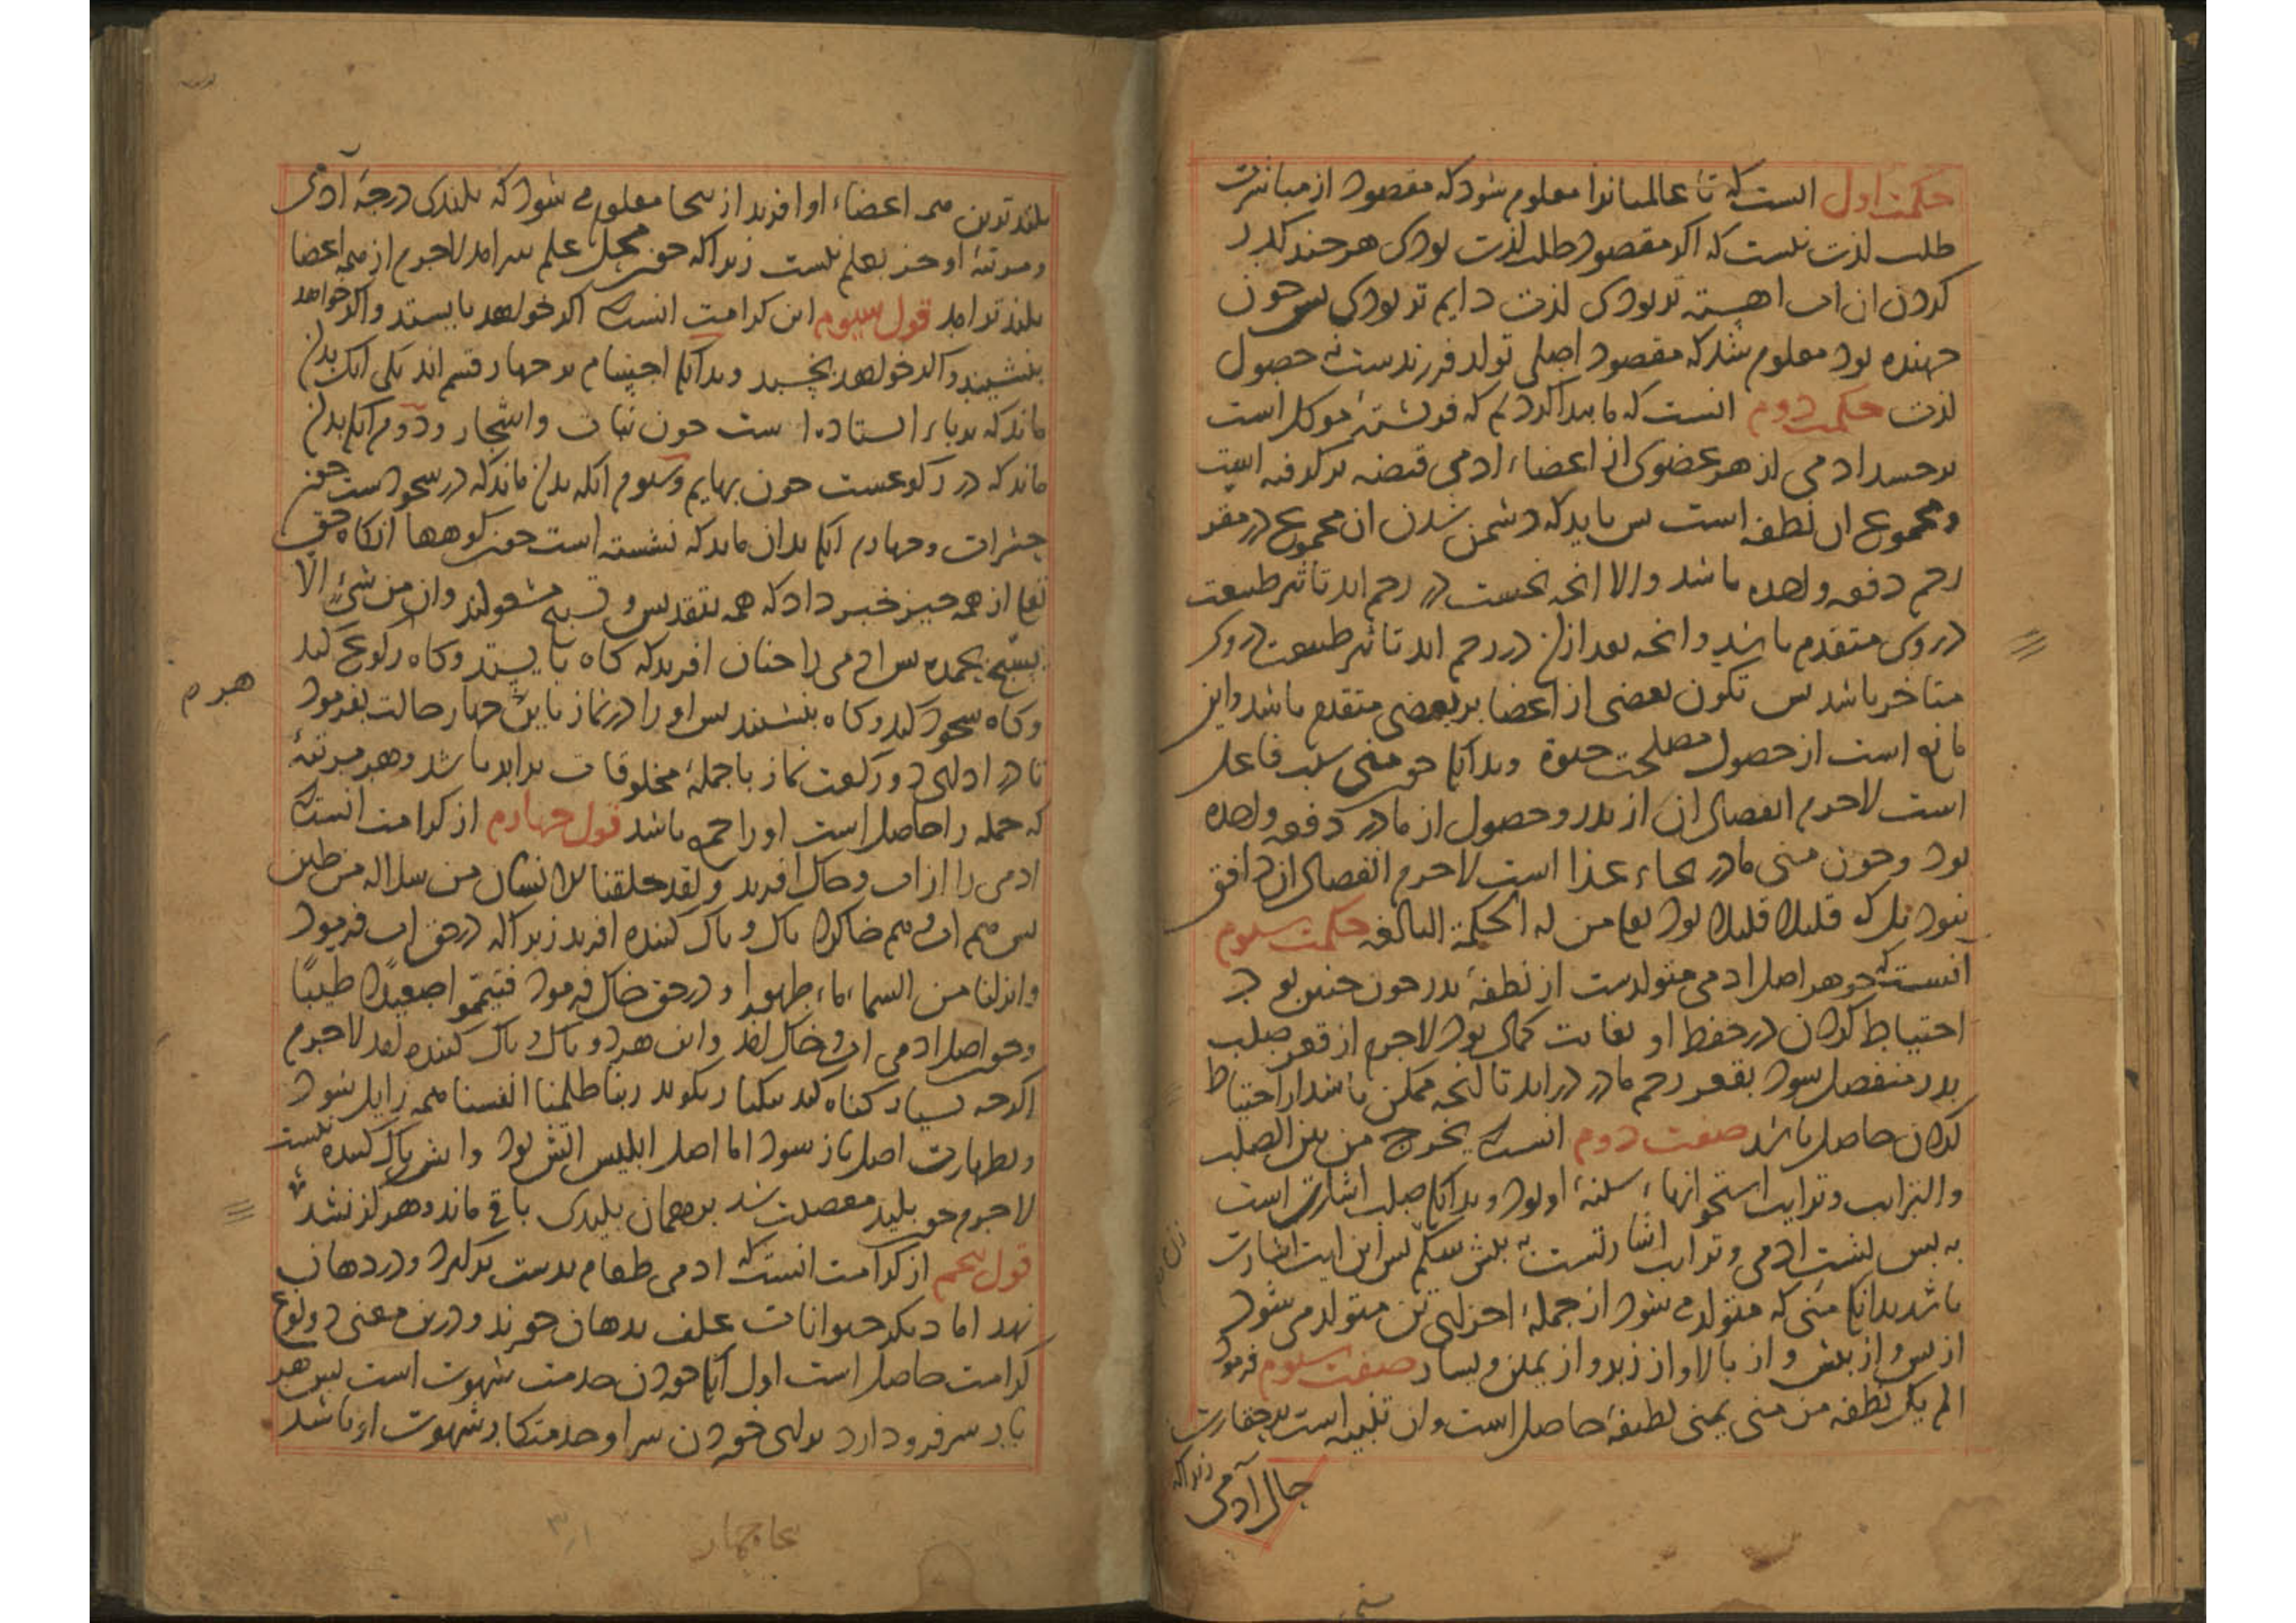 حکمت اول انست که تا عالمیانرا معلوم شود که مقصود از مباشرت
طلب لذت نیست که اکر مقصود طلب لذت بودی هرچند
کردن ان اب اهسته تر بودی لذت دایم تر بودی پس چون
جهنده بود معلوم شد که مقصود اصلی تولد فرزندست نه حصول
لذت حکمت دوم انست که ما پیدا کردیم که فرشتۀ موکل است
بر جسد ادمی از هر عضوی از اعضاء ادمی قبضه بر کرفته است
و مجموع ان نطفه است پس باید که شدن ان مجموع در مقر
رحم دفعه واحده باشد والا انچه نخست در رحم اید تاثیر طبیعت
در وی متقدم باشد و انچه بعد ازان در رحم اید تاثیر طبیعت در وی
متاخر باشد پس تکون بعضی از اعضا بر بعضی متقدم باشد و این
مانع است از حصول مصلحت حیوة و بدانک چون منی سبب فاعل
است لاجرم انفصال ان از پدر و حصول از مادر دفعه واحده
بود و چون منی مادر بجاء غذا است لاجرم انفصال ازان دافق
نبود بل که قلیلا قلیلا بود تعا من له الحکمة البالغه حکمت سیوم
آنست که جوهر اصل ادمی متولدست از نطفۀ پدر چون چنین بود
احتیاط کردن در حفظ او بغایت کمال بود لاجرم از قعر صلب
پدر منفصل شود بقعر رحم مادر در اید تا انچه ممکن باشد از احتیاط
کردن حاصل باشد صفت دوم انست که یخرج من بین الصلب
والترایب و ترایب استخوانهاء سینۀ او بود و بدانک صلب اشارت است
به پس پشت ادمی و ترایب اشارتست به پیش شکم پس این ایت اشارت
باشد بدانک منی که متولد می شود از جملۀ اجزای تن متولد می شود
از پس و از پیش و از بالا و از زیر و از یمین و یسار صفت سیوم فرمود
الم یک نطفه من منی یمنی لطیفۀ حاصل است و ان تنبیه است بر حقارت
حال آدمی زیرا که
بلند ترین همه اعضاء او افرید از ینجا معلوم می شود که بلندی درجۀ آدمی
و مرتبۀ او جز بعلم نیست زیرا که چون محل علم سر امد لاجرم از همه اعضا
بلند تر امد قول سیوم این کرامت انست که اکر خواهد بایستد و اکر خواهد
بنشیند و اکر خواهد بخسبد و بدانک اجسام بر چهار قسم اند یکی انک بدان
ماند که بر پاء استاده است چون نبات و اشجار و دوم انک بدان
ماند که در رکوعست چون بهایم و سیوم انکه بدان ماند که در سجودست چون
حشرات و چهارم انک بدان ماند که نشسته است چون کوهها انکاه حق
تعا از همه چیز خبر داد که همه بتقدیس و تسبیح مشغولند وان من شیء الا
یسبح بحمده پس ادمی را چنان افرید که کاه بایستد و کاه رکوع کند
و کاه سجود کند و کاه بنشیند پس او را در نماز باین چهار حالت بفرمود
تا در ادای دو رکعت نماز با جملۀ مخلوقات برابر باشد و هر مرتبۀ
که جمله را حاصل است او را جمع باشد قول چهارم از کرامت انست که
ادمی را از اب و خاک افرید و لقد خلقنا الانسان من سلاله من طین
پس هم اب و هم خاک را پاک و پاک کننده افرید زیرا که در حق اب فرمود
و انزلنا من السماء ماء طهورا و در حق خاک فرمود فتیمموا صعیدا طیبا
و چو اصل ادمی اب و خاک امد و این هر دو پاک و پاک کننده امد لاجرم
اکرچه بسیار کناه کند یکبار بکوید ربنا ظلمنا انفسنا همه زایل شود
و بطهارت اصل باز شود اما اصل ابلیس اتش بود و اتش پاک کننده نیست
لاجرم چو پلید معصیت شد بر همان پلیدی باقی ماند و هرکز نشد
قول پنجم از کرامت انست که ادمی طعام بدست بر کیرد و در دهان
نهد اما دیکر حیوانات علف بدهان خورند و درین معنی دو نوع
کرامت حاصل است اول انک خوردن خدمت شهوت است پس هر
بار سر فرود ارد برای خوردن سر او خدمتکار شهوت او باشد
هرم